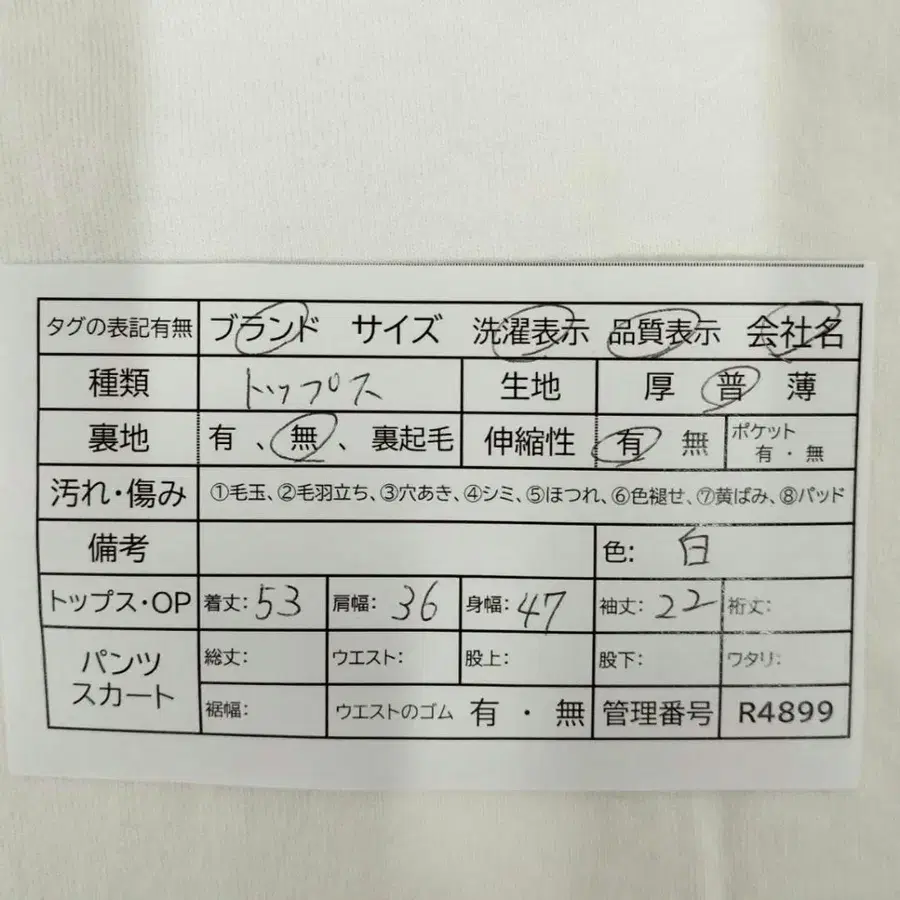 タグの表記有無 ブランド サイズ 洗濯表示 品質表示 会社名
種類 トップス 生地 厚 普 薄
裏地 有、無、裏起毛 伸縮性 有 無 ポケット 有・無
汚れ・傷み ①毛玉、②毛羽立ち、③穴あき、④シミ、⑤ほつれ、⑥色褪せ、⑦黄ばみ、⑧パッド
備考 色: 白
トップス・OP 着丈: 53 肩幅: 36 身幅: 47 袖丈: 22 裄丈:
パンツ スカート 総丈: ウエスト: 股上: 股下: ワタリ:
裾幅: ウエストのゴム 有・無 管理番号 R4899